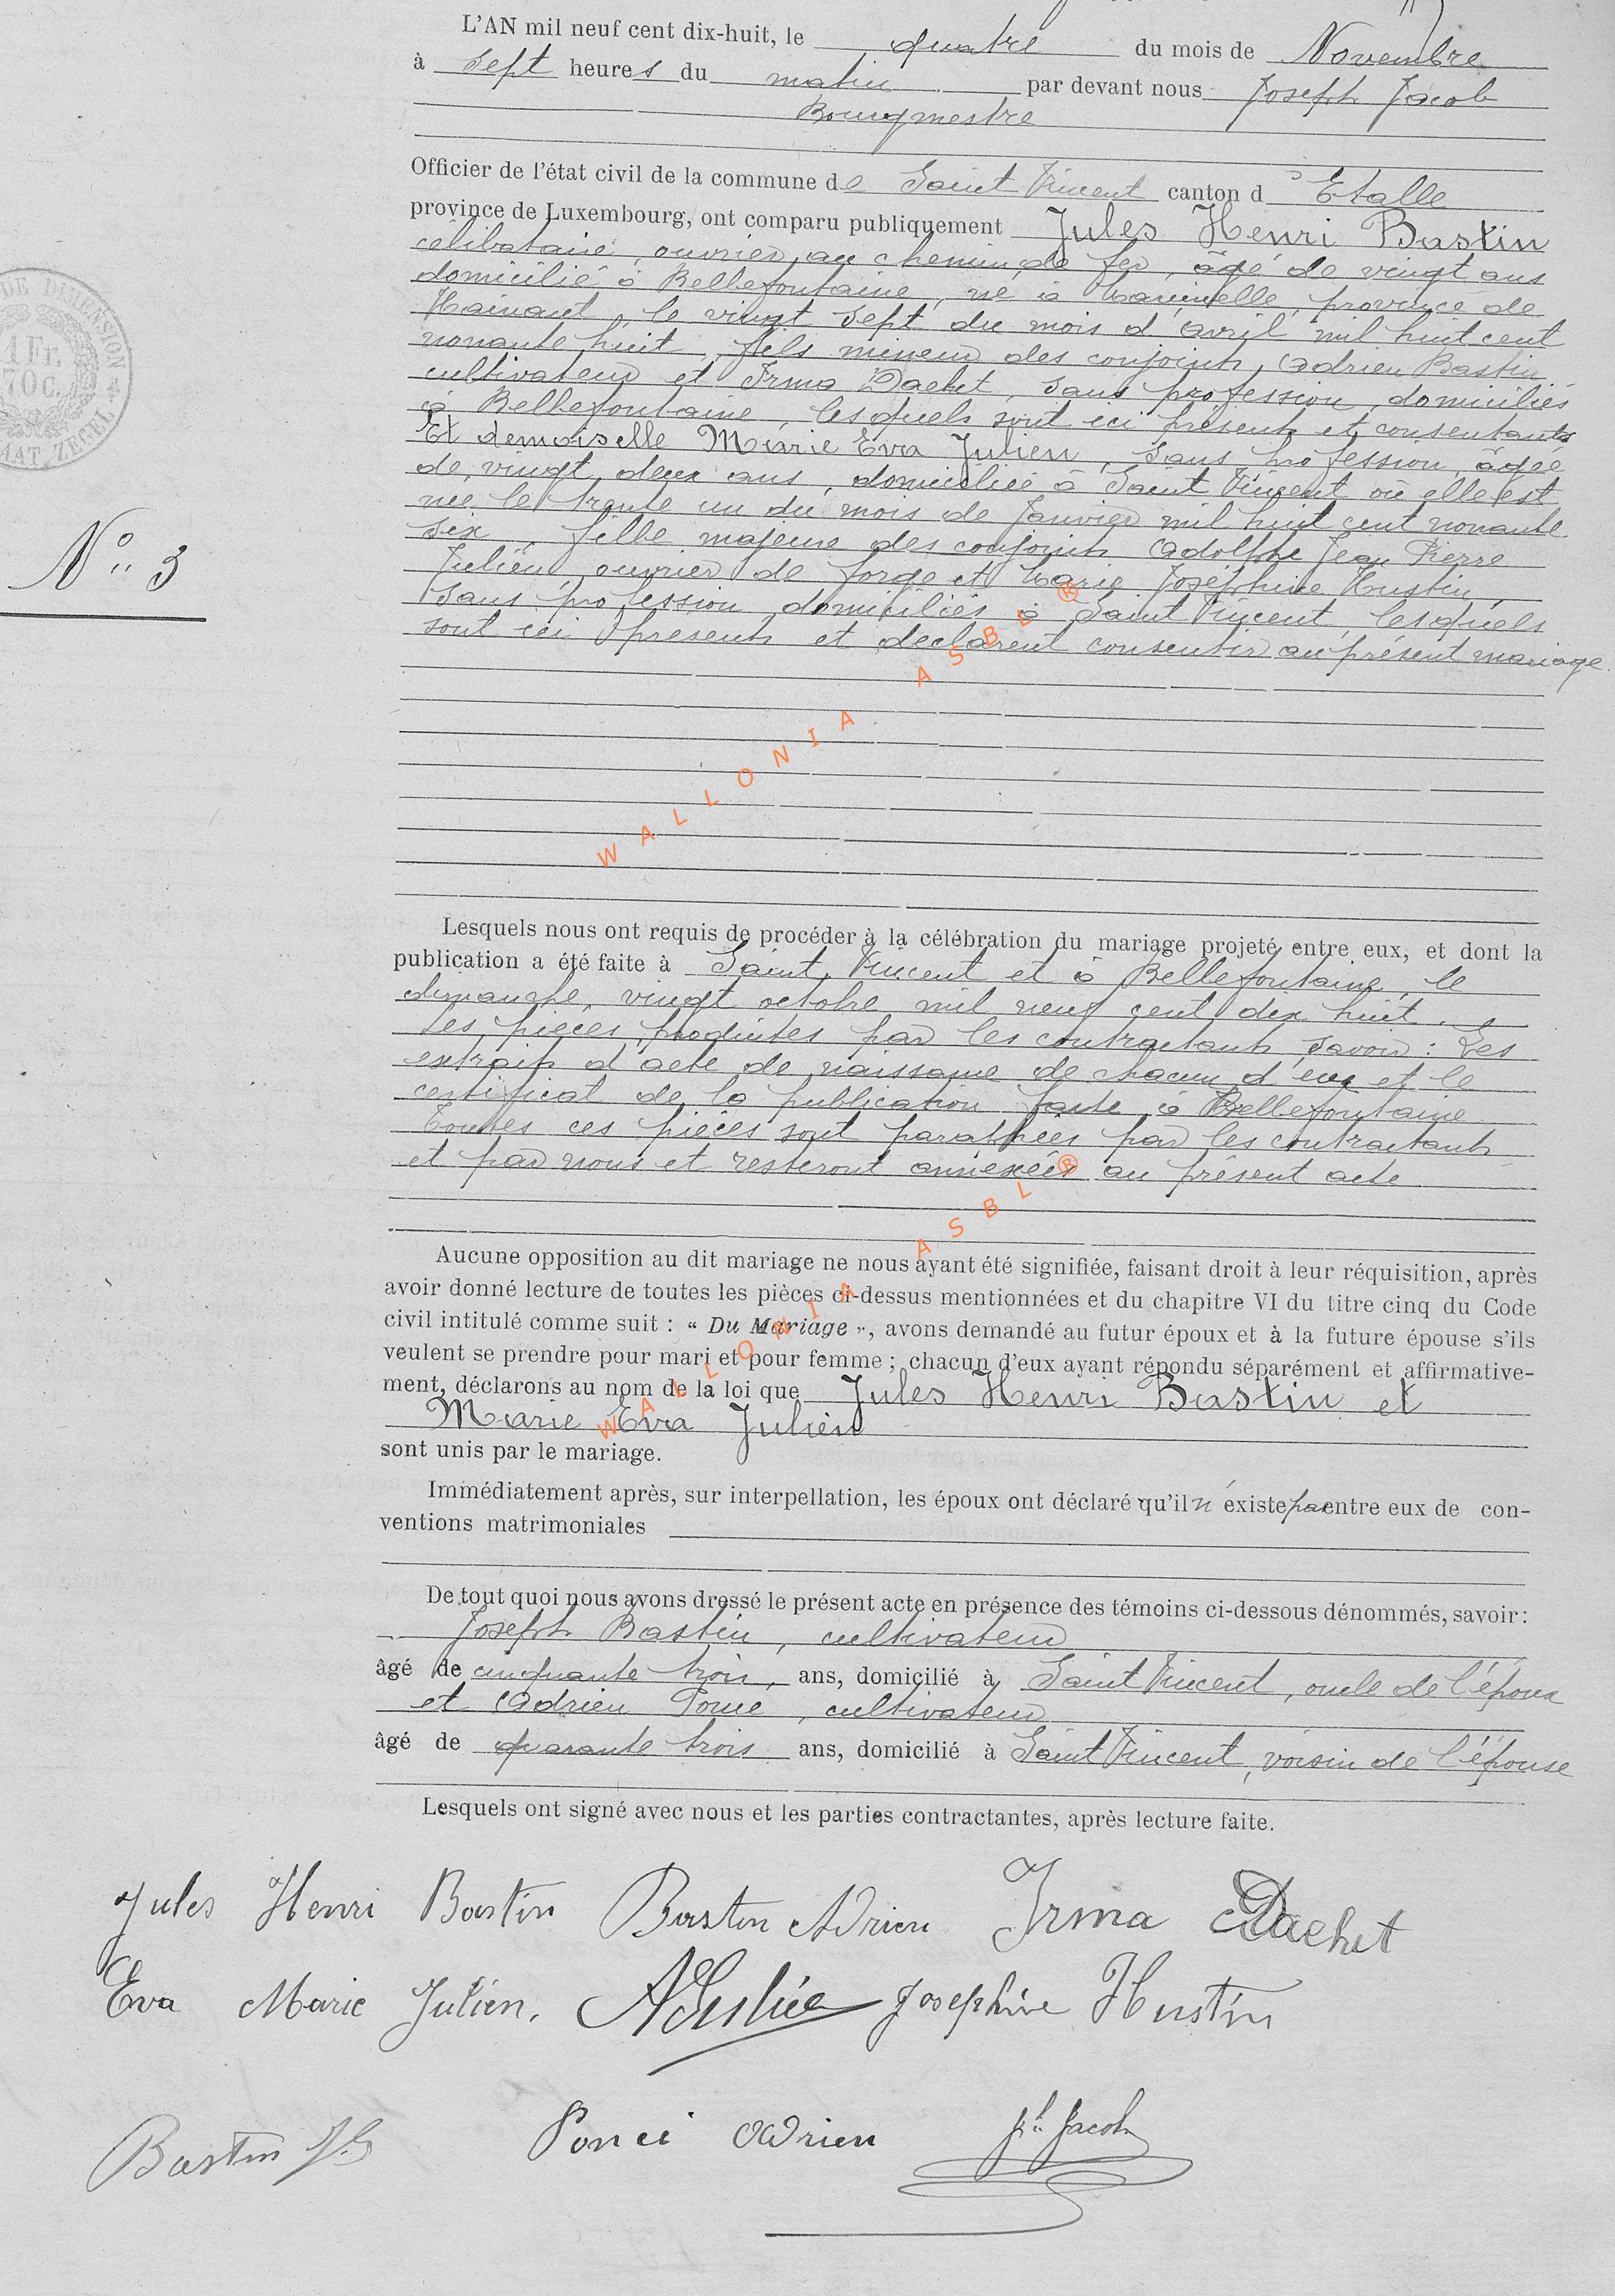 L'AN mil neuf cent dix-huit, le quatre du mois de Novembre
à sept heures du matin par devant nous Joseph Jacob
Bourgmestre
Officier de l'état civil de la commune de Saint Vincent canton d'Etalle
province de Luxembourg, ont comparu publiquement Jules Henri Bastin
célibataire, ouvrier au chemin de fer, âgé de vingt ans
domicilié à Bellefontaine, né à Marcinelle, province de
Hainaut, le vingt sept du mois d'avril mil huit cent
nonante huit, fils mineur des conjoints, Adrien Bastin
cultivateur et Irma Dachet, sans profession, domiciliés
à Bellefontaine, lesquels sont ici présents et consentants
Et demoiselle Marie Eva Julien, sans profession, âgée
de vingt deux ans, domiciliée à Saint Vincent où elle est
née le trente un du mois de Janvier mil huit cent nonante
six, fille majeure des conjoints Adolphe Jean Pierre
Julien, ouvrier de forge et Marie Joséphine Hustin,
sans profession, domiciliés à Saint Vincent, lesquels
sont ici présents et déclarent consentir au présent mariage.
N° 3
DE DIMENSION
1 Fr.
70c.
MAT ZEGEL
WALLONIA ASBL ®
Lesquels nous ont requis de procéder à la célébration du mariage projeté entre eux, et dont la
publication a été faite à Saint Vincent et à Bellefontaine, le
dimanche, vingt octobre mil neuf cent dix huit.
Les pièces produites par les contractants savoir : Les
extraits d'acte de naissance de chacun d'eux et le
certificat de la publication faite à Bellefontaine
Toutes ces pièces sont paraphées par les contractants
et par nous et resteront annexées au présent acte
Aucune opposition au dit mariage ne nous ayant été signifiée, faisant droit à leur réquisition, après
avoir donné lecture de toutes les pièces ci-dessus mentionnées et du chapitre VI du titre cinq du Code
civil intitulé comme suit : « Du Mariage », avons demandé au futur époux et à la future épouse s'ils
veulent se prendre pour mari et pour femme ; chacun d'eux ayant répondu séparément et affirmative-
ment, déclarons au nom de la loi que Jules Henri Bastin et
Marie Eva Julien
WALLONIA ASBL ®
sont unis par le mariage.
Immédiatement après, sur interpellation, les époux ont déclaré qu'il n'existe pas entre eux de con-
ventions matrimoniales
De tout quoi nous avons dressé le présent acte en présence des témoins ci-dessous dénommés, savoir :
Joseph Bastin, cultivateur
âgé de cinquante trois, ans, domicilié à Saint Vincent, oncle de l'époux
et Adrien Ponce, cultivateur
âgé de quarante trois ans, domicilié à Saint Vincent, voisin de l'épouse
Lesquels ont signé avec nous et les parties contractantes, après lecture faite.
Jules Henri Bastin Bastin Adrien Irma Dachet
Eva Marie Julien. AJulien Josephine Hustin
Bastin Poncé Adrien Jh Jacob